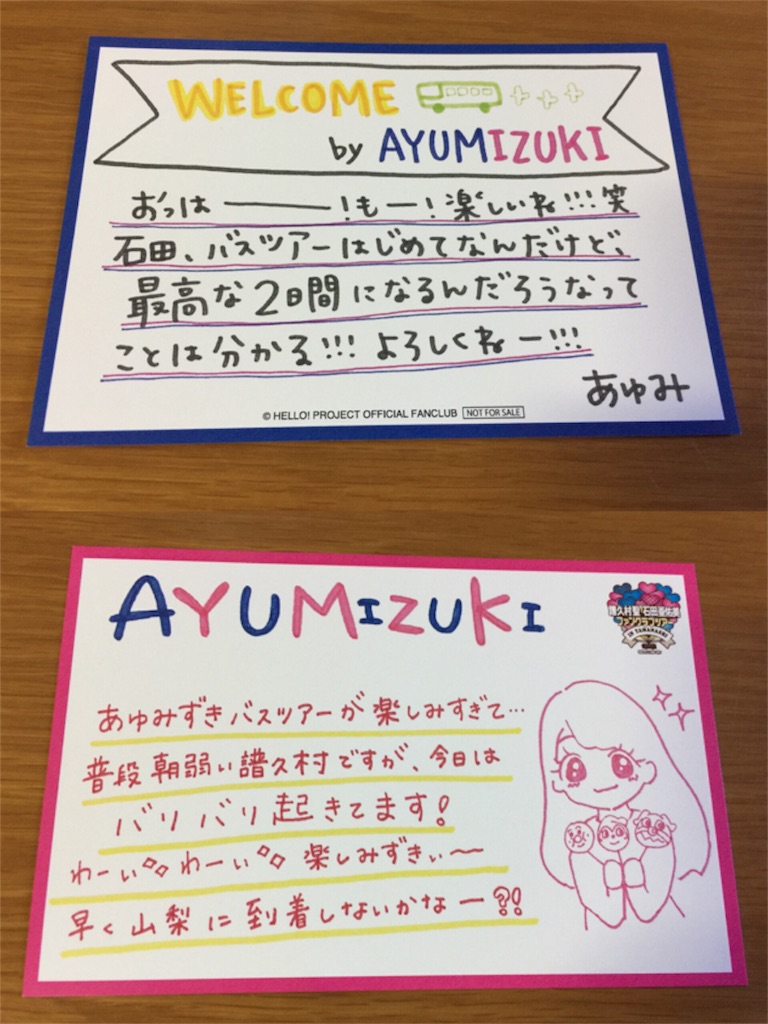 WELCOME
by AYUMIZUKI
おっはーーー!もー!楽しいね!!!笑
石田、バスツアーはじめてなんだけど、
最高な2日間になるんだろうなって
ことは分かる!!!よろしくねー!!!
あゆみ
© HELLO! PROJECT OFFICIAL FANCLUB NOT FOR SALE
AYUMIZUKI
譜久村聖・石田亜佑美
ファンクラブツアー
IN YAMANASHI
あゆみずきバスツアーが楽しみすぎて…
普段朝弱い譜久村ですが、今日は
バリバリ起きてます!
わーい わーい 楽しみずきぃ〜
早く山梨に到着しないかなー?!